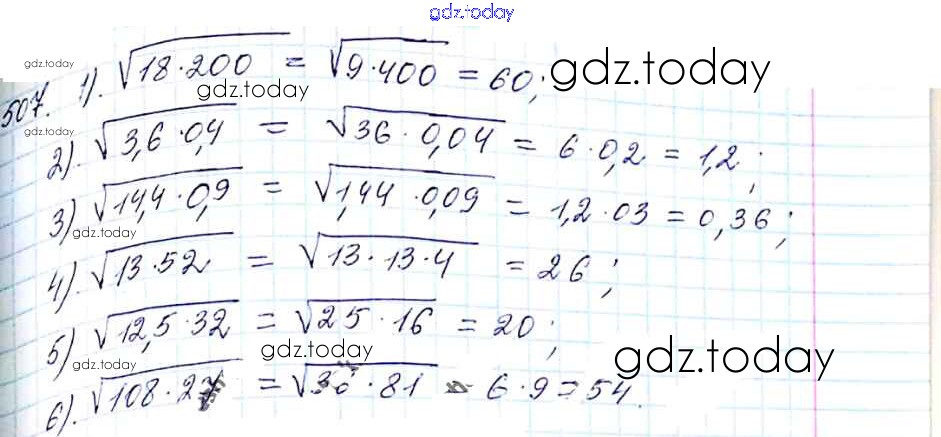 gdz.today
507. 1). √18·200 = √9·400 = 60;
gdz.today
gdz.today
gdz.today
2). √3,6·0,4 = √36·0,04 = 6·0,2 = 1,2;
gdz.today
3) √14,4·0,9 = √1,44·0,09 = 1,2·03 = 0,36;
gdz.today
gdz.today
4). √13·52 = √13·13·4 = 26;
gdz.today
5) √12,5·32 = √25·16 = 20;
gdz.today
gdz.today
gdz.today
6). √108·27 = √36·81 = 6·9 = 54.